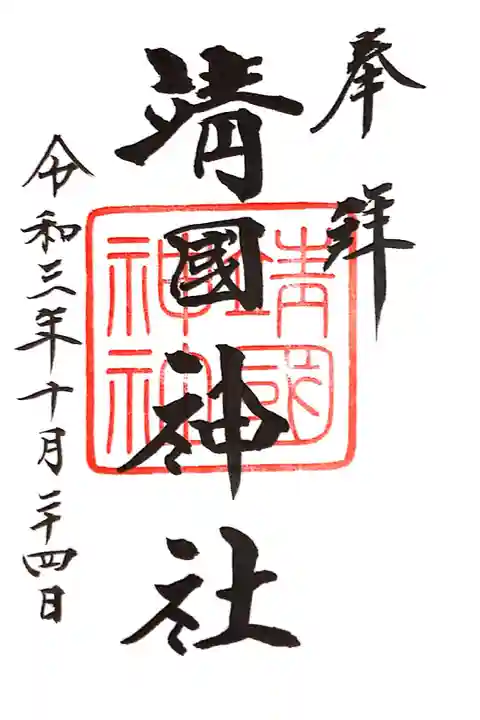 奉拜
靖國神社
靖國
神社
令和三年十月二十四日